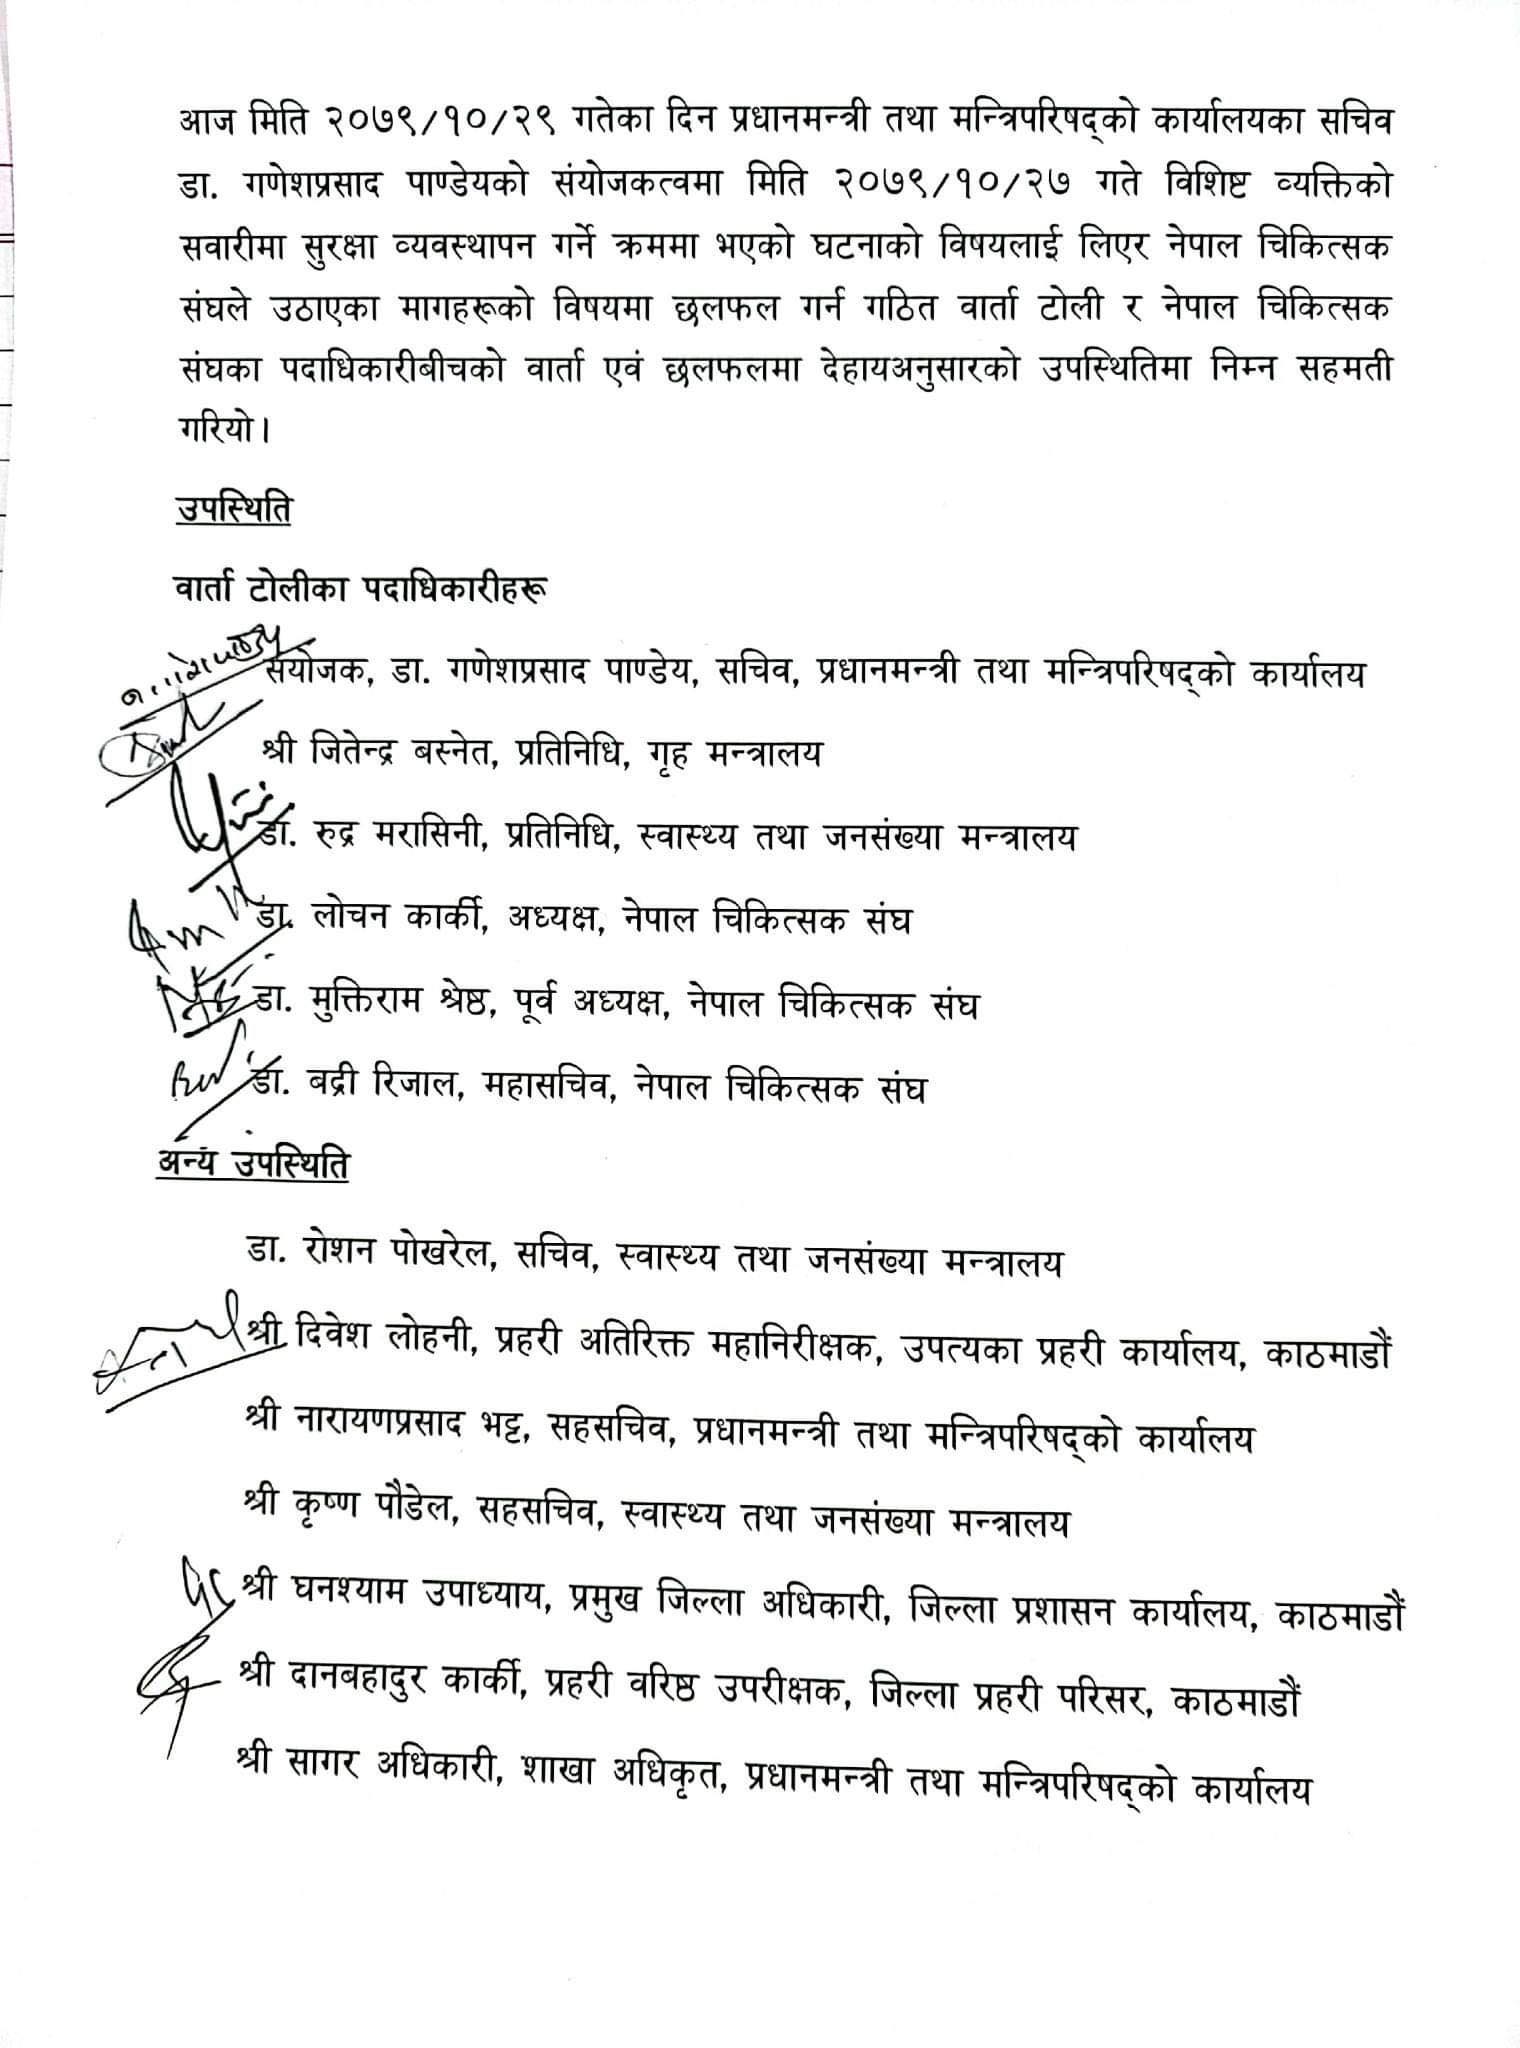 आज मिति २०७९/१०/२९ गतेका दिन प्रधानमन्त्री तथा मन्त्रिपरिषद्को कार्यालयका सचिव
डा. गणेशप्रसाद पाण्डेयको संयोजकत्वमा मिति २०७९/१०/२७ गते विशिष्ट व्यक्तिको
सवारीमा सुरक्षा व्यवस्थापन गर्ने क्रममा भएको घटनाको विषयलाई लिएर नेपाल चिकित्सक
संघले उठाएका मागहरूको विषयमा छलफल गर्न गठित वार्ता टोली र नेपाल चिकित्सक
संघका पदाधिकारीबीचको वार्ता एवं छलफलमा देहायअनुसारको उपस्थितिमा निम्न सहमती
गरियो।
उपस्थिति
वार्ता टोलीका पदाधिकारीहरू
संयोजक, डा. गणेशप्रसाद पाण्डेय, सचिव, प्रधानमन्त्री तथा मन्त्रिपरिषद्को कार्यालय
श्री जितेन्द्र बस्नेत, प्रतिनिधि, गृह मन्त्रालय
डा. रुद्र मरासिनी, प्रतिनिधि, स्वास्थ्य तथा जनसंख्या मन्त्रालय
डा. लोचन कार्की, अध्यक्ष, नेपाल चिकित्सक संघ
डा. मुक्तिराम श्रेष्ठ, पूर्व अध्यक्ष, नेपाल चिकित्सक संघ
डा. बद्री रिजाल, महासचिव, नेपाल चिकित्सक संघ
अन्य उपस्थिति
डा. रोशन पोखरेल, सचिव, स्वास्थ्य तथा जनसंख्या मन्त्रालय
श्री दिवेश लोहनी, प्रहरी अतिरिक्त महानिरीक्षक, उपत्यका प्रहरी कार्यालय, काठमाडौं
श्री नारायणप्रसाद भट्ट, सहसचिव, प्रधानमन्त्री तथा मन्त्रिपरिषद्को कार्यालय
श्री कृष्ण पौडेल, सहसचिव, स्वास्थ्य तथा जनसंख्या मन्त्रालय
श्री घनश्याम उपाध्याय, प्रमुख जिल्ला अधिकारी, जिल्ला प्रशासन कार्यालय, काठमाडौं
श्री दानबहादुर कार्की, प्रहरी वरिष्ठ उपरीक्षक, जिल्ला प्रहरी परिसर, काठमाडौं
श्री सागर अधिकारी, शाखा अधिकृत, प्रधानमन्त्री तथा मन्त्रिपरिषद्को कार्यालय